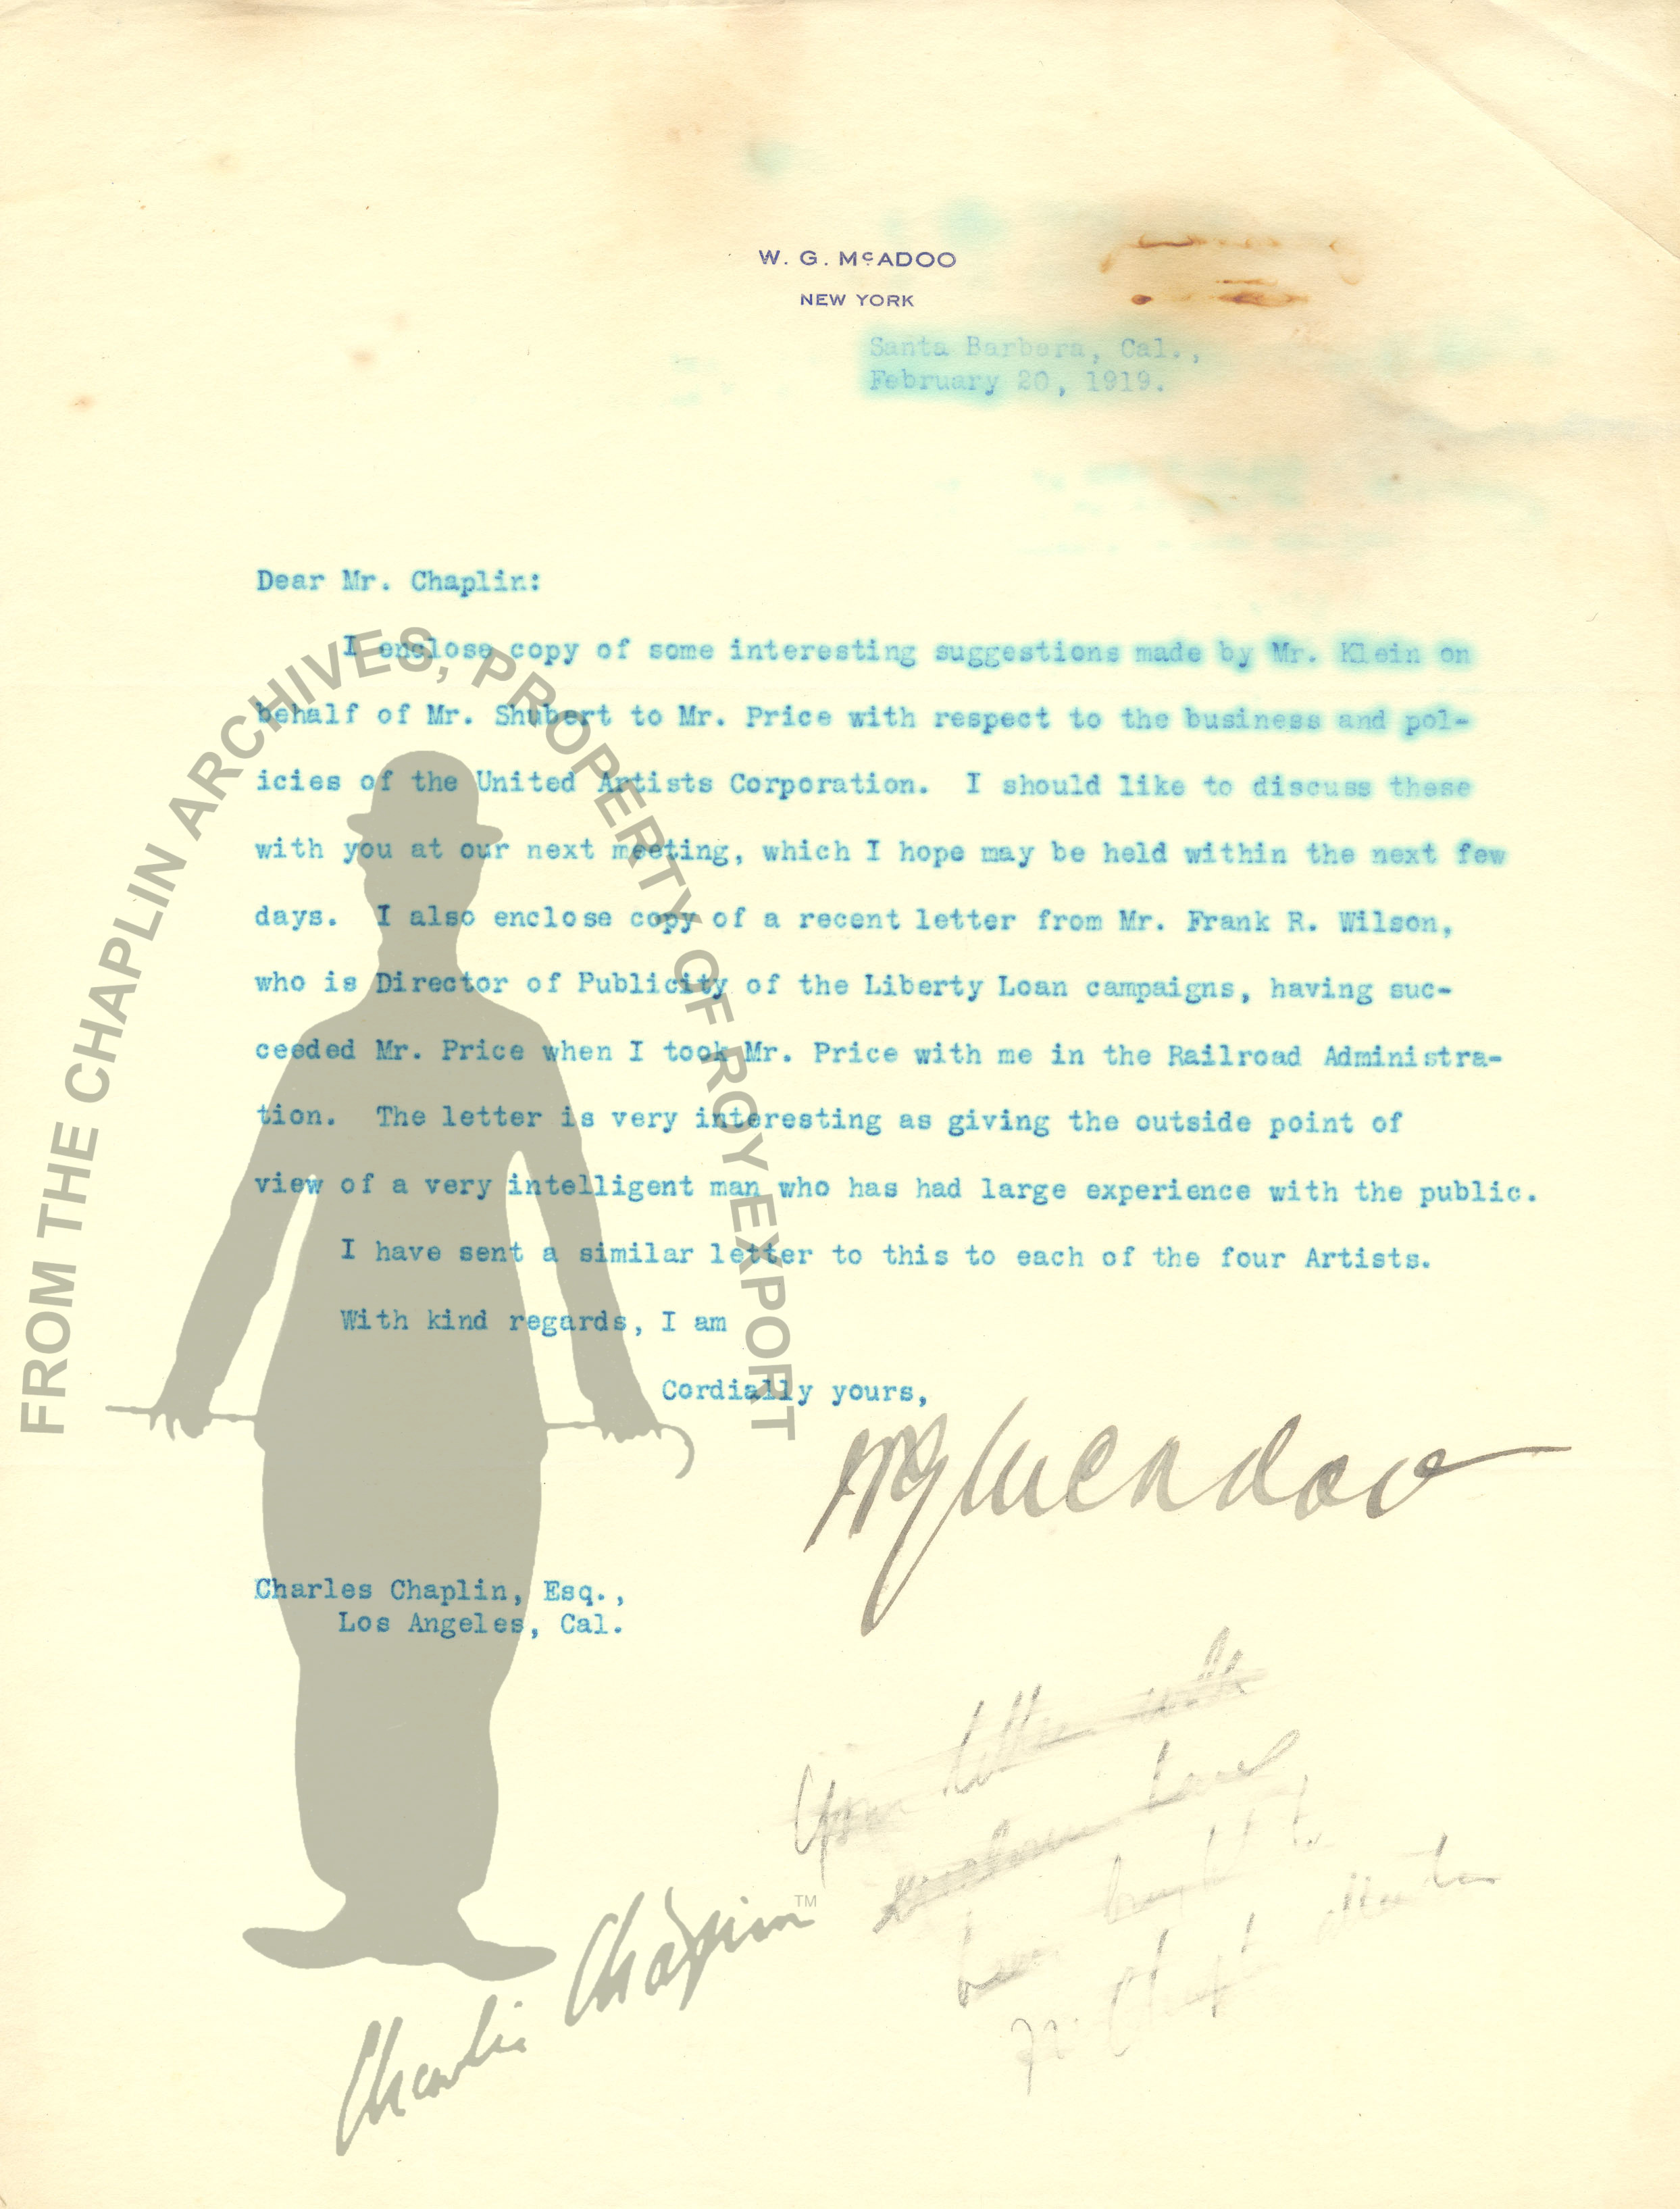 W. G. McADOO
NEW YORK
Santa Barbara, Cal.,
February 20, 1919.
Dear Mr. Chaplin:
I enclose copy of some interesting suggestions made by Mr. Klein on
behalf of Mr. Shubert to Mr. Price with respect to the business and pol-
icies of the United Artists Corporation. I should like to discuss these
with you at our next meeting, which I hope may be held within the next few
days. I also enclose copy of a recent letter from Mr. Frank R. Wilson,
who is Director of Publicity of the Liberty Loan campaigns, having suc-
ceeded Mr. Price when I took Mr. Price with me in the Railroad Administra-
tion. The letter is very interesting as giving the outside point of
view of a very intelligent man who has had large experience with the public.
I have sent a similar letter to this to each of the four Artists.
With kind regards, I am
Cordially yours,
WG McAdoo
Charles Chaplin, Esq.,
Los Angeles, Cal.
Your letter with
have
been
to
Mr Chaplin
FROM THE CHAPLIN ARCHIVES, PROPERTY OF ROY EXPORT
Charlie Chaplin™